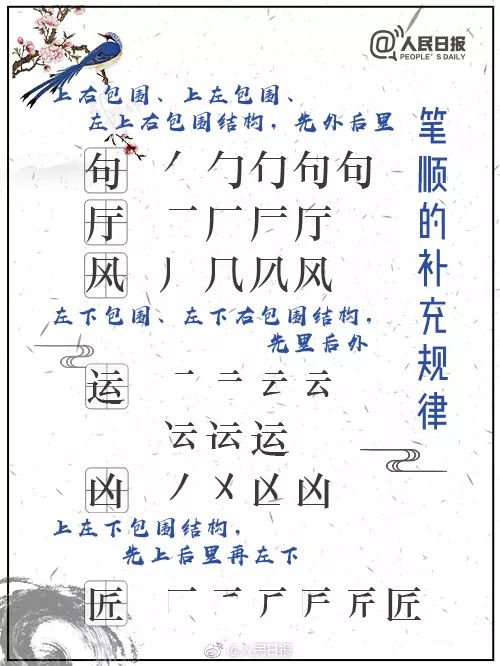 @人民日报
PEOPLE'S DAILY
笔顺的补充规律
上右包围、上左包围、
左上右包围结构，先外后里
句 丿 勹 勹 句 句
厅 一 厂 厅 厅
风 丿 几 风 风
左下包围、左下右包围结构，
先里后外
运 一 二 云 云
运 运 运
凶 丿 㐅 凶 凶
上左下包围结构，
先上后里再左下
匠 一 匚 匠 匠 匠 匠
@人民日报